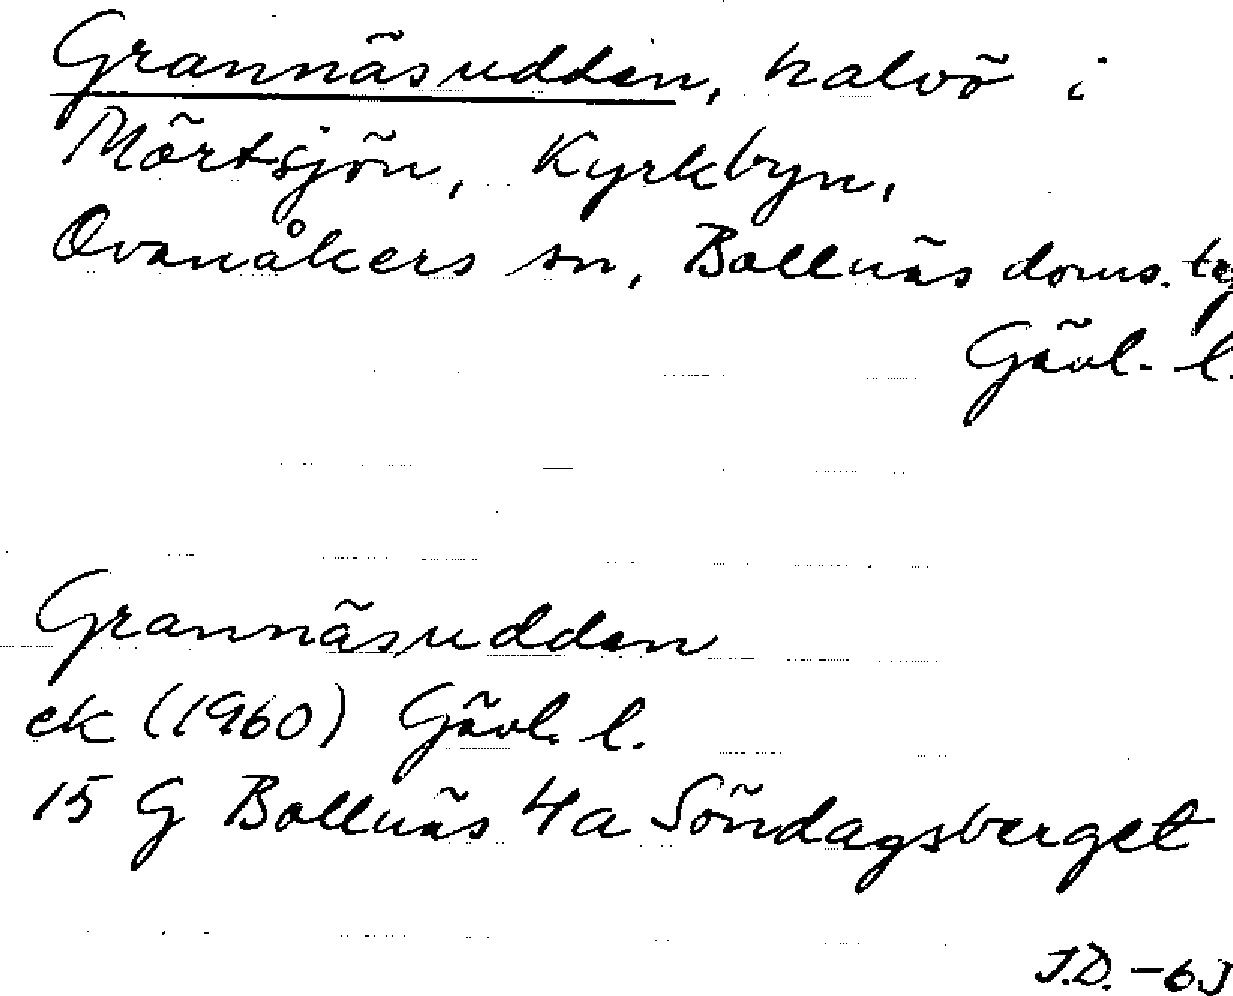 Grannäsudden, halvö i
Mörtsjön, Kyrkbyn,
Ovanåkers sn, Bollnäs doms.
Gävl. l.
Grannäsudden
ek (1960) Gävl. l.
15 G Bollnäs 4a Söndagsberget
J.D.